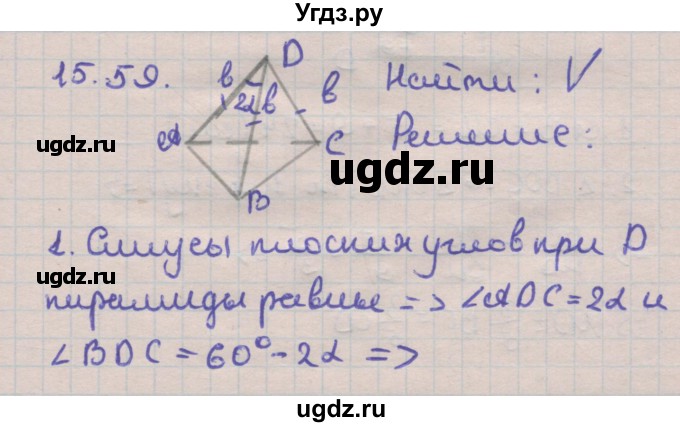 Угдз.ру
15.59.
D
в
2α
в
в
A
C
B
Найти: V
Решение:
ugdz.ru
ugdz.ru
ugdz.ru
1. Синусы плоских углов при D
пирамиды равны => ∠ADC = 2α и
∠BDC = 60° - 2α =>
ugdz.ru
ugdz.ru
ugdz.ru